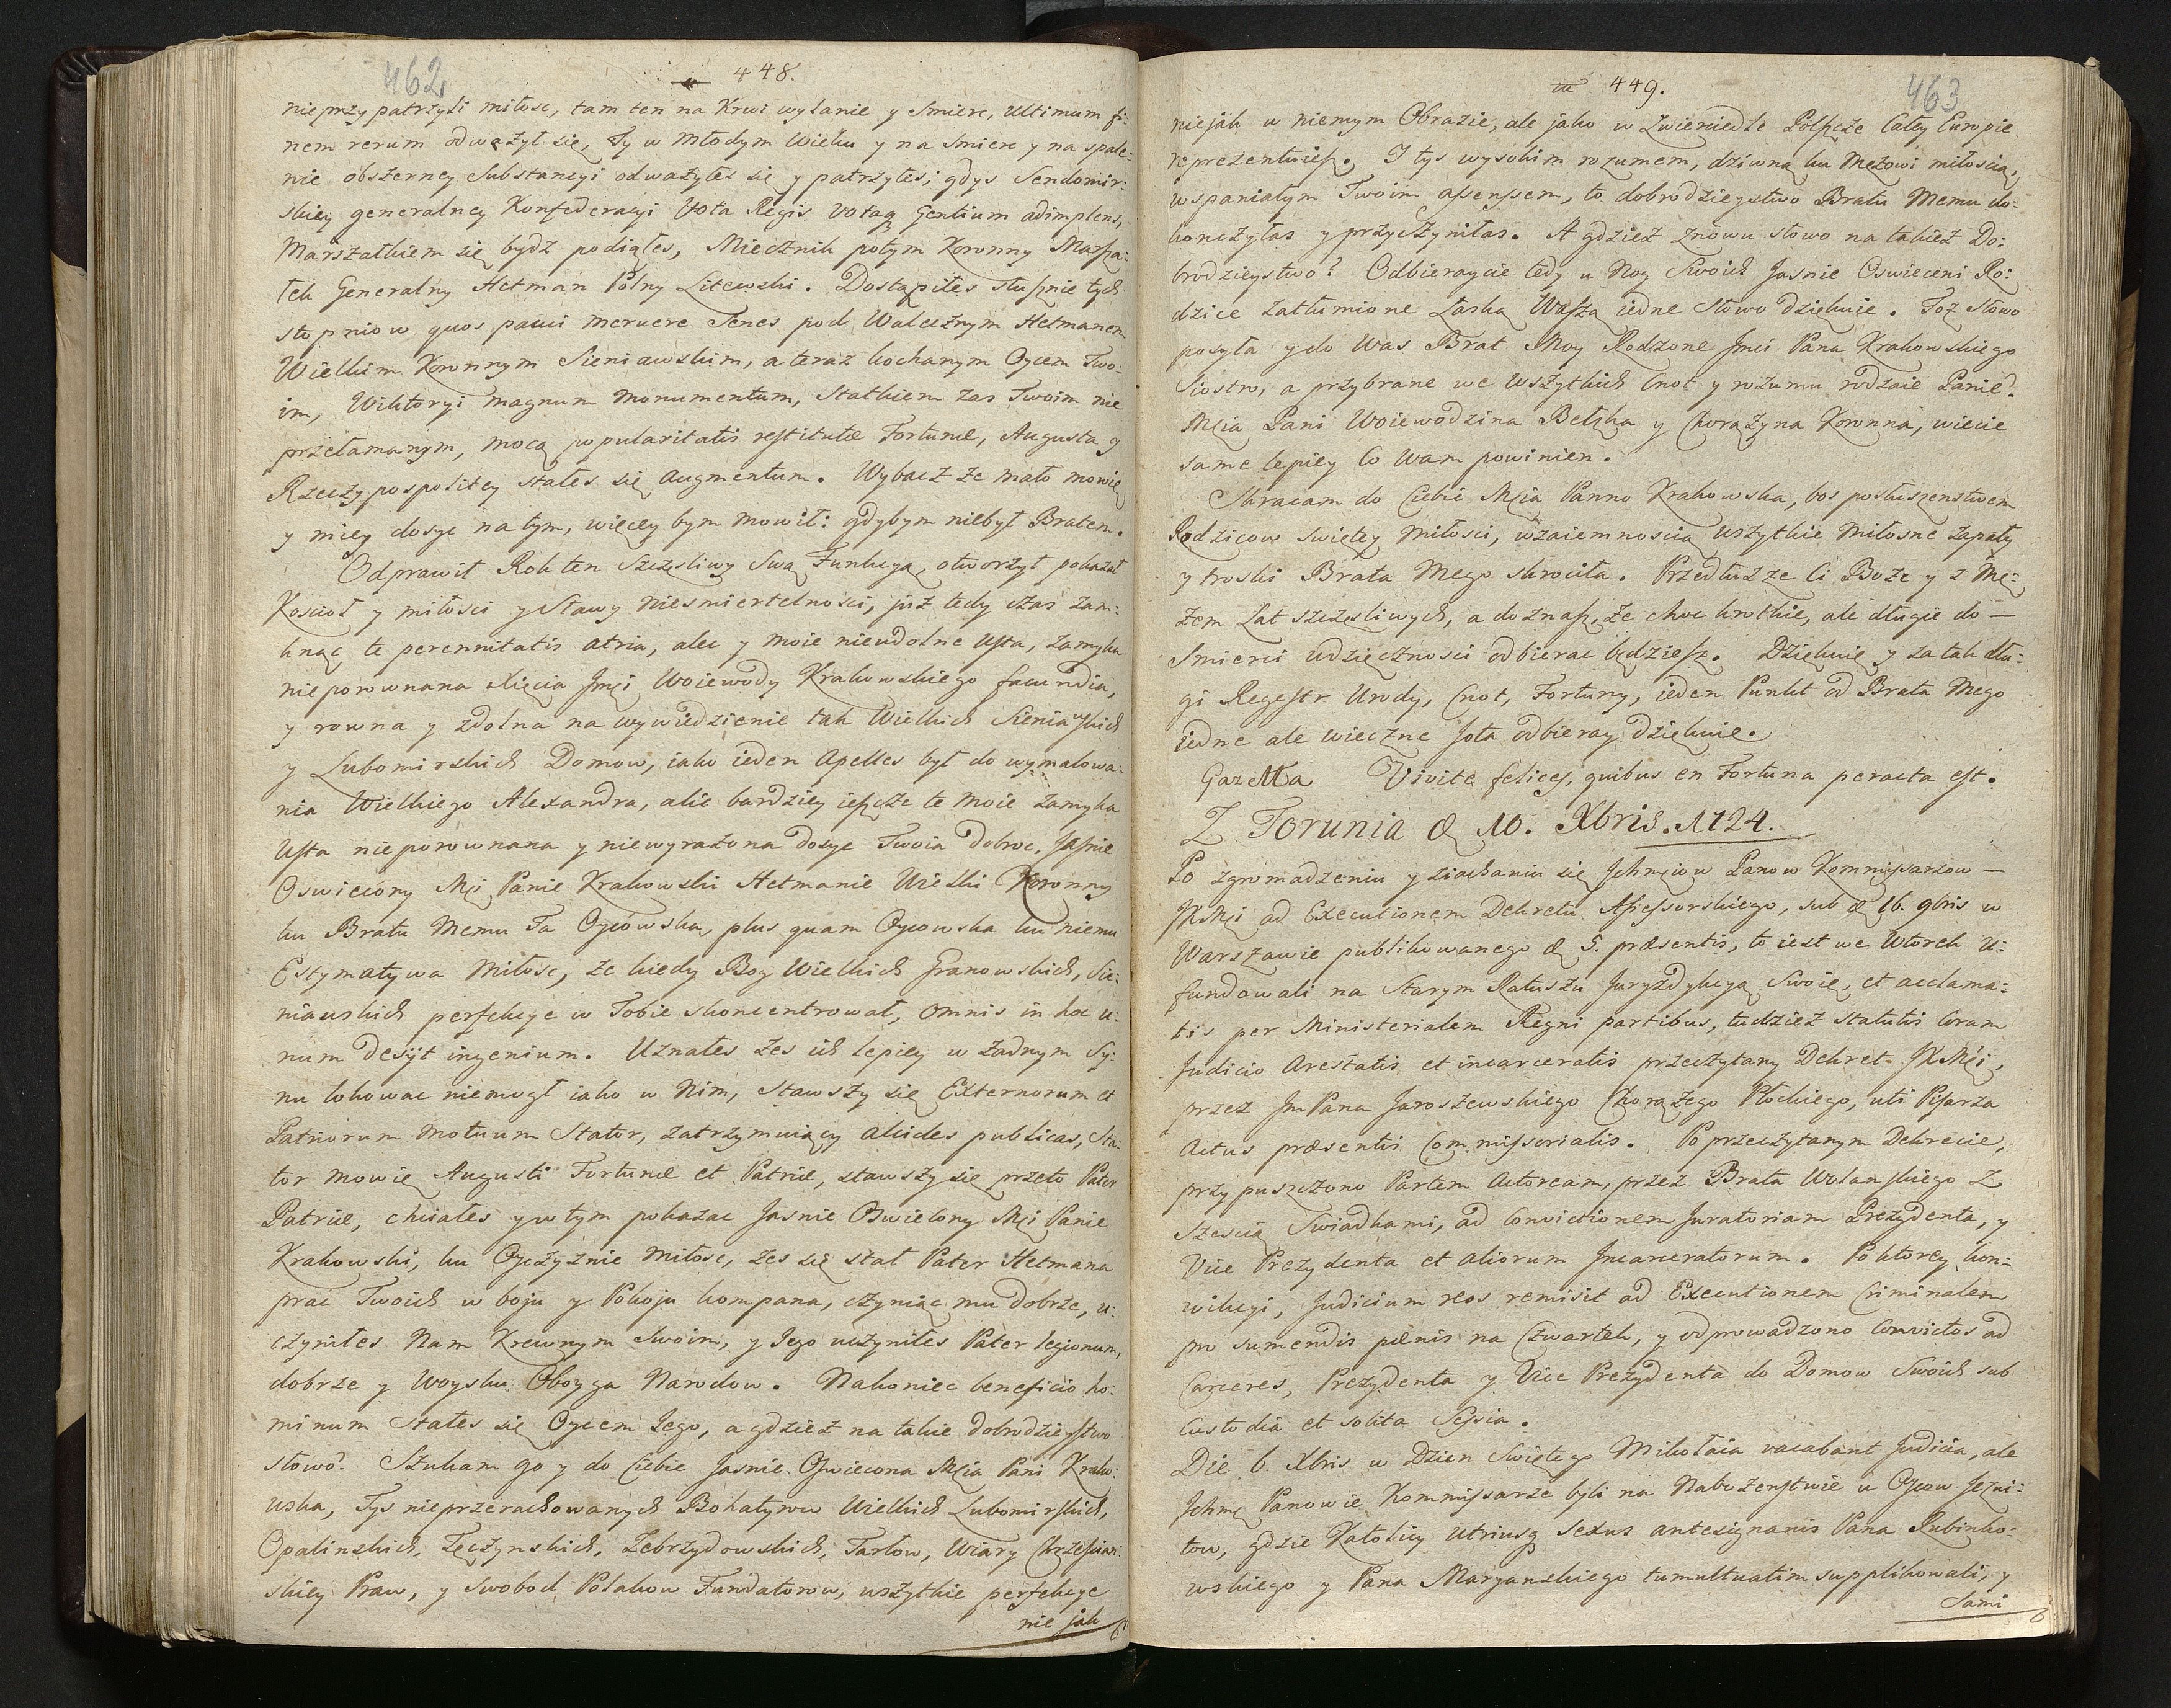 462
448.
nieprzypatrzyli miłosc, tam ten na Krwi wylanie y Smierc, Ultimum fi:
nem rerum odważył się, Ty w Młodym Wieku y na Smierc y na spale:
nie obszerney Substancyi odważyłes się y patrzyłes; gdys Sendomir:
skiey generalney Konfederacyi Vota Regis votaq Gentium adimplens,
Marszałkiem się bydz podiąłes, Miecznik potym Koronny Marsza:
łek Generalny Hetman Polny Litewski. Dostąpiłes słusznie tych
stopniow quos pauci meruere Senes pod Walecznym Hetmanem
Wielkim Koronnym Sieniawskim, a teraz kochanym Oycem Two:
im, Wiktoryi magnum monumentum, Statkiem zas Twoim nie
przełamanym, mocą popularitatis restitutæ Fortunæ, Augusta y
Rzeczypospolitey stałes się augmentum. Wybacz ze mało mowię
y miey dosyc na tym, więcey bym mowił: gdybym niebył Bratem.
Odprawił Rok ten Szczęsliwy Swą Funkcyą, otworzył pokazał
Koscioł y miłosci y Sławy niesmiertelnosci, juz tedy czas zam:
knąc te perennitatis atria, alec y moie nieudolne Usta, zamyka
nieporownana Xięcia Jmci Woiewody Krakowskiego facundia,
y rowna y zdolna na wywiedzienie tak Wielkich Sieniawskich
y Lubomirskich Domow, iako ieden Apelles był do wymalowa:
nia Wielkiego Alexandra, alie bardziey ieszcze te moie zamyka
Usta nieporownana y niewyrażona dosyc Twoia dobroc, Jasnie
Oswiecony Mci Panie Krakowski Hetmanie Wielki Koronny
ku Bratu Memu Ta Oycowska, plus quam Oycowska ku niemu
Estymatywa Miłosc, ze kiedy Bog Wielkich Granowskich, Sie:
niawskich perfekcye w Tobie skoncentrował, omnis in hoc u:
num desijt ingenium. Uznałes zes ich lepiey w zadnym Sy:
nu lokowac niemogł iako w Nim, stawszy się Externorum et
Patriorum motuum Stator, zatrzymuiący alcides publicas, Sta:
tor mowię Augusti Fortunæ et Patriæ, stawszy się przeto Pater
Patriæ, chciałes y w tym pokazac Jasnie Oswiecony Mci Panie
Krakowski, ku Oyczyznie Miłosc, zes się stał Pater Hetmana
prac Twoich w boju y Pokoju kompana, czyniąc mu dobrze, u:
czyniłes Nam Krewnym Swoim, y Jego uczyniłes Pater legionum,
dobrze y Woysku Oboyga Narodow. Nakoniec beneficio ho:
minum stałes się Oycem Jego, a gdzież na takie dobrodzieystwo
słowo. Szukam go y do Ciebie Jasnie Oswiecona Mcia Pani Krako:
wska, Tys nieprzerachowanych Bohatyrow Wielkich Lubomirskich,
Opalinskich, Tęczynskich, Zebrzydowskich, Tarłow, Wiary Chrzescian:
skiey Praw, y Swobod Polakow Fundatorow, wszytkie perfekcye
nie jak
463
449.
niejak w niemym Obrazie, ale jako w Zwierciedle Polszcze Całey Europie
reprezentuiesz. I tys wysokim rozumem, dziwną ku Mężowi miłoscią,
wspaniałym Twoim assensem, to dobrodzieystwo Bratu Memu do:
konczyłas y przyczyniłas. A gdzież znowu słowo na takież Do:
brodzieystwo? Odbieraycie tedy u Nog Swoich Jasnie Oswieceni Ro:
dzice zatłumione Łaską Waszą iedne Słowo dziękuie. Toż słowo
posyła y do Was Brat Moy Rodzone Jmci Pana Krakowskiego
Siostro, a przybrane we wszytkich Cnot y rozumu rodzaie Panie.
Mcia Pani Woiewodzina Bełzka y Chorążyna Koronna, wiecie
same lepiey co Wam powinien.
Skracam do Ciebie Mcia Panno Krakowska, bos posłuszenstwem
Rodzicow Swiętey Miłosci, wzaiemnoscią wszytkie Miłosne zapały
y troski Brata Mego skrociła. Przedłuż ze Ci Boze y z Mę:
żem Lat szczęsliwych, a doznasz, że choc krotkie, ale długie do —
Smierci wdzięcznosci odbierac będziesz. Dziękuię y za tak dłu:
gi Regestr Urody, Cnot, Fortuny, ieden Punkt od Brata Mego
iedne ale wieczne Jota odbieray dziękuie.
Gazetta Vivite felices, quibus en Fortuna peracta est.
Z Torunia d 10. Xbris. 1724.
Po zgromadzeniu y ziachaniu się Jchmciow Panow Kommissarzow —
JKMci ad Executionem Dekretu Assessorskiego, sub d 16. 9bris w
Warszawie publikowanego d 5. præsentis, to iest we Wtorek u:
fundowali na Starym Ratuszu Juryzdykcyą Swoię, et acclama:
tis per Ministerialem Regni partibus, tudzież statutis Coram
Judicio Arestatis et incarceratis przeczytany Dekret JKMci,
przez Jm Pana Jaroszewskiego Chorążego Płockiego, uti Pisarza
Actus præsentis Commissorialis. Po przeczytanym Dekrecie,
przypuszczono Partem Actoream, przez Brata Wolanskiego Z
Szescią Swiadkami, ad Convictionem Juratoriam Prezydenta, y
Vice Prezydenta et aliorum Incarceratorum. Po ktorey kon:
wikcyi, Judicium reos remisit ad Executionem Criminalem
pro sumendis pænis na Czwartek, y odprowadzono Convictos ad
Carceres, Prezydenta y Vice Prezydenta do Domow Swoich sub
Custodia et solita Sessia.
Die 6. Xbris w Dzien Swiętego Mikołaia vacabant Judicia, ale
Jchmc Panowie Kommissarze byli na Nabożenstwie u Oycow Jezui:
tow, gdzie Katolicy utriusq Sexus antesignanis Pana Rubinko:
wskiego y Pana Maryanskiego tumultuatim supplikowali, y
Sami